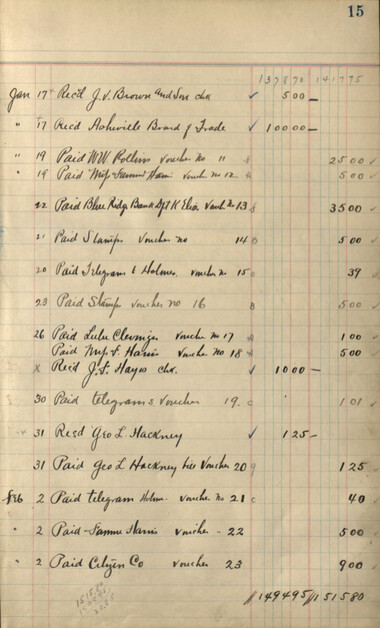 15
137870 141775
Jan 17 Rec'd J. V. Brown and Son chk ✓ 500 —
" 17 Rec'd Asheville Board of Trade ✓ 10000 —
" 19 Paid W W Rollins voucher no 11 2500 ✓
" 19 Paid Miss Fannie Harris voucher no 12 500 ✓
22 Paid Blue Ridge Bank K Elias Vouch No 13 3500 ✓
21 Paid Stamps voucher no 14 B 500 ✓
20 Paid Telegram Holmes voucher no 15 39 ✓
23 Paid Stamps voucher no 16 B 500 ✓
26 Paid Lula voucher no 17 100 ✓
Paid Miss F. Harris voucher no 18 500 ✓
x Rec'd J. F. Hays chk. ✓ 1000 —
30 Paid telegrams voucher 19. c 101 ✓
31 Recd Geo L Hackney ✓ 125 —
31 Paid Geo L Hackney voucher 20 125 ✓
Feb 2 Paid telegram Holmes voucher no 21 c 40 ✓
" 2 Paid Fannie Harris voucher - 22 500 ✓
" 2 Paid Citizen Co voucher 23 900 ✓
149495 151580